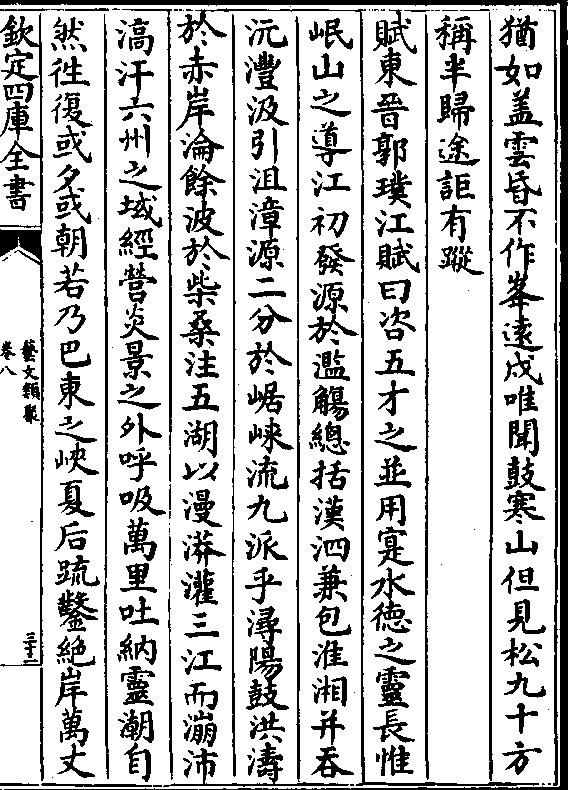 猶如盖雲昏不作峯遠戍唯聞鼓寒山但見松九十方
稱半歸途詎有蹤
賦東晉郭璞江賦曰咨五才之並用寔水德之靈長惟
岷山之導江初發源於濫觴總括漢泗兼包淮湘并吞
沅灃汲引沮漳源二分於崌崍流九派乎潯陽鼓洪濤
於赤岸淪餘波於柴桑注五湖以漫漭灌三江而漰沛
滈汗六州之域經營炎景之外呼吸萬里吐納靈潮自
然往復或夕或朝若乃巴東之峽夏后疏鑿絶岸萬丈
欽定四庫全書
藝文類聚
卷八
三十二